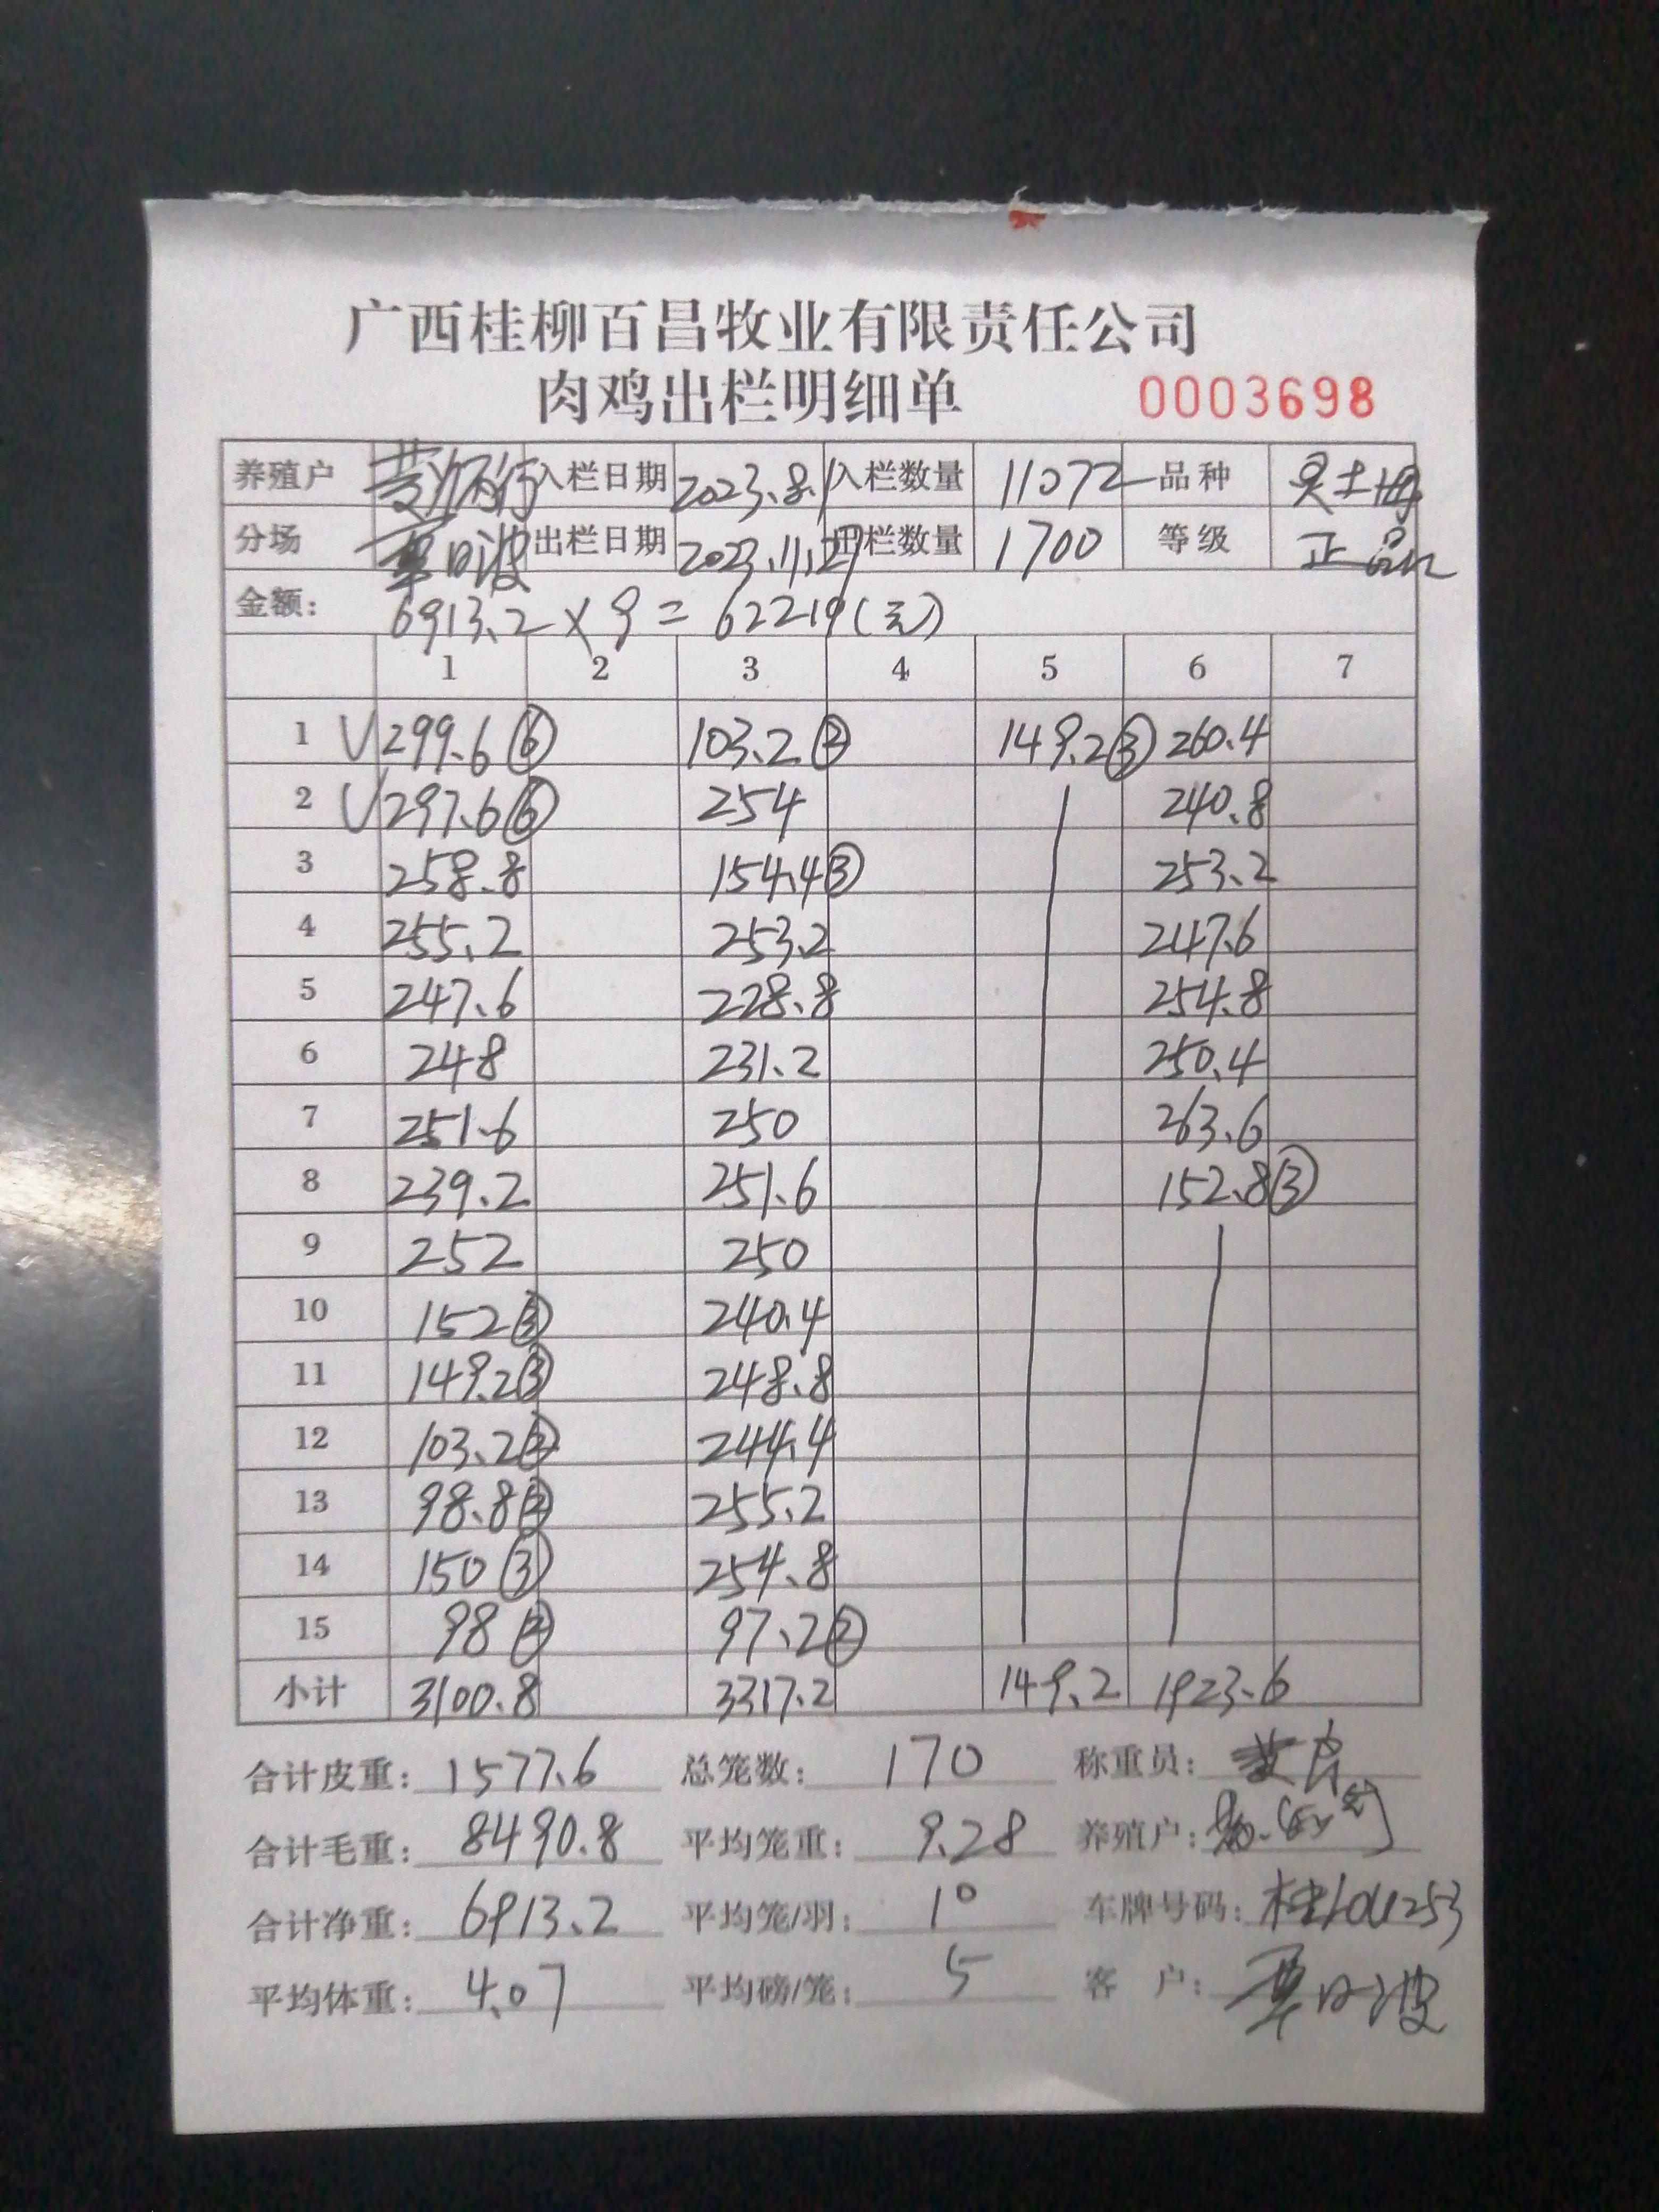 广西桂柳百昌牧业有限责任公司
肉鸡出栏明细单 0003698
养殖户 入栏日期 2023.8.1 入栏数量 11072 品种
分场 覃日波 出栏日期 2023.11.27 出栏数量 1700 等级 正品
金额: 6913.2×9=62219(元)
1 2 3 4 5 6 7
1 V 299.6⑥ 103.2② 149.2③ 260.4
2 V 297.6⑥ 254 240.8
3 258.8 154.4③ 253.2
4 255.2 253.2 247.6
5 247.6 228.8 254.8
6 248 231.2 250.4
7 251.6 250 263.6
8 239.2 251.6 152.8③
9 252 250
10 152③ 240.4
11 149.2③ 248.8
12 103.2② 244.4
13 98.8② 255.2
14 150③ 254.8
15 98② 97.2②
小计 3100.8 3317.2 149.2 1923.6
合计皮重: 1577.6 总笼数: 170 称重员:
合计毛重: 8490.8 平均笼重: 9.28 养殖户:
合计净重: 6913.2 平均笼/羽: 10 车牌号码:
平均体重: 4.07 平均磅/笼: 5 客 户: 覃日波